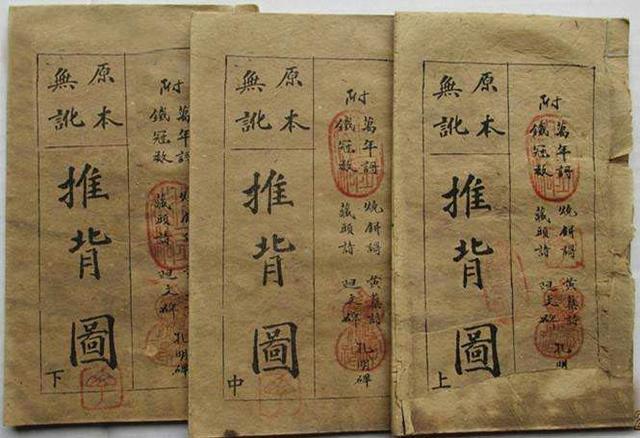 附
萬年謌 燒餅謌 黃蘗詩 孔明
鐵冠数 藏頭詩 迴文碑
原本
無訛
推背圖
上
附
萬年謌 燒餅謌 黃蘗詩 孔明碑
鐵冠数 藏頭詩 迴文碑
原本
無訛
推背圖
中
附
萬年謌 燒 孔明碑
鐵冠数 藏頭詩 迴文碑
原本
無訛
推背圖
下